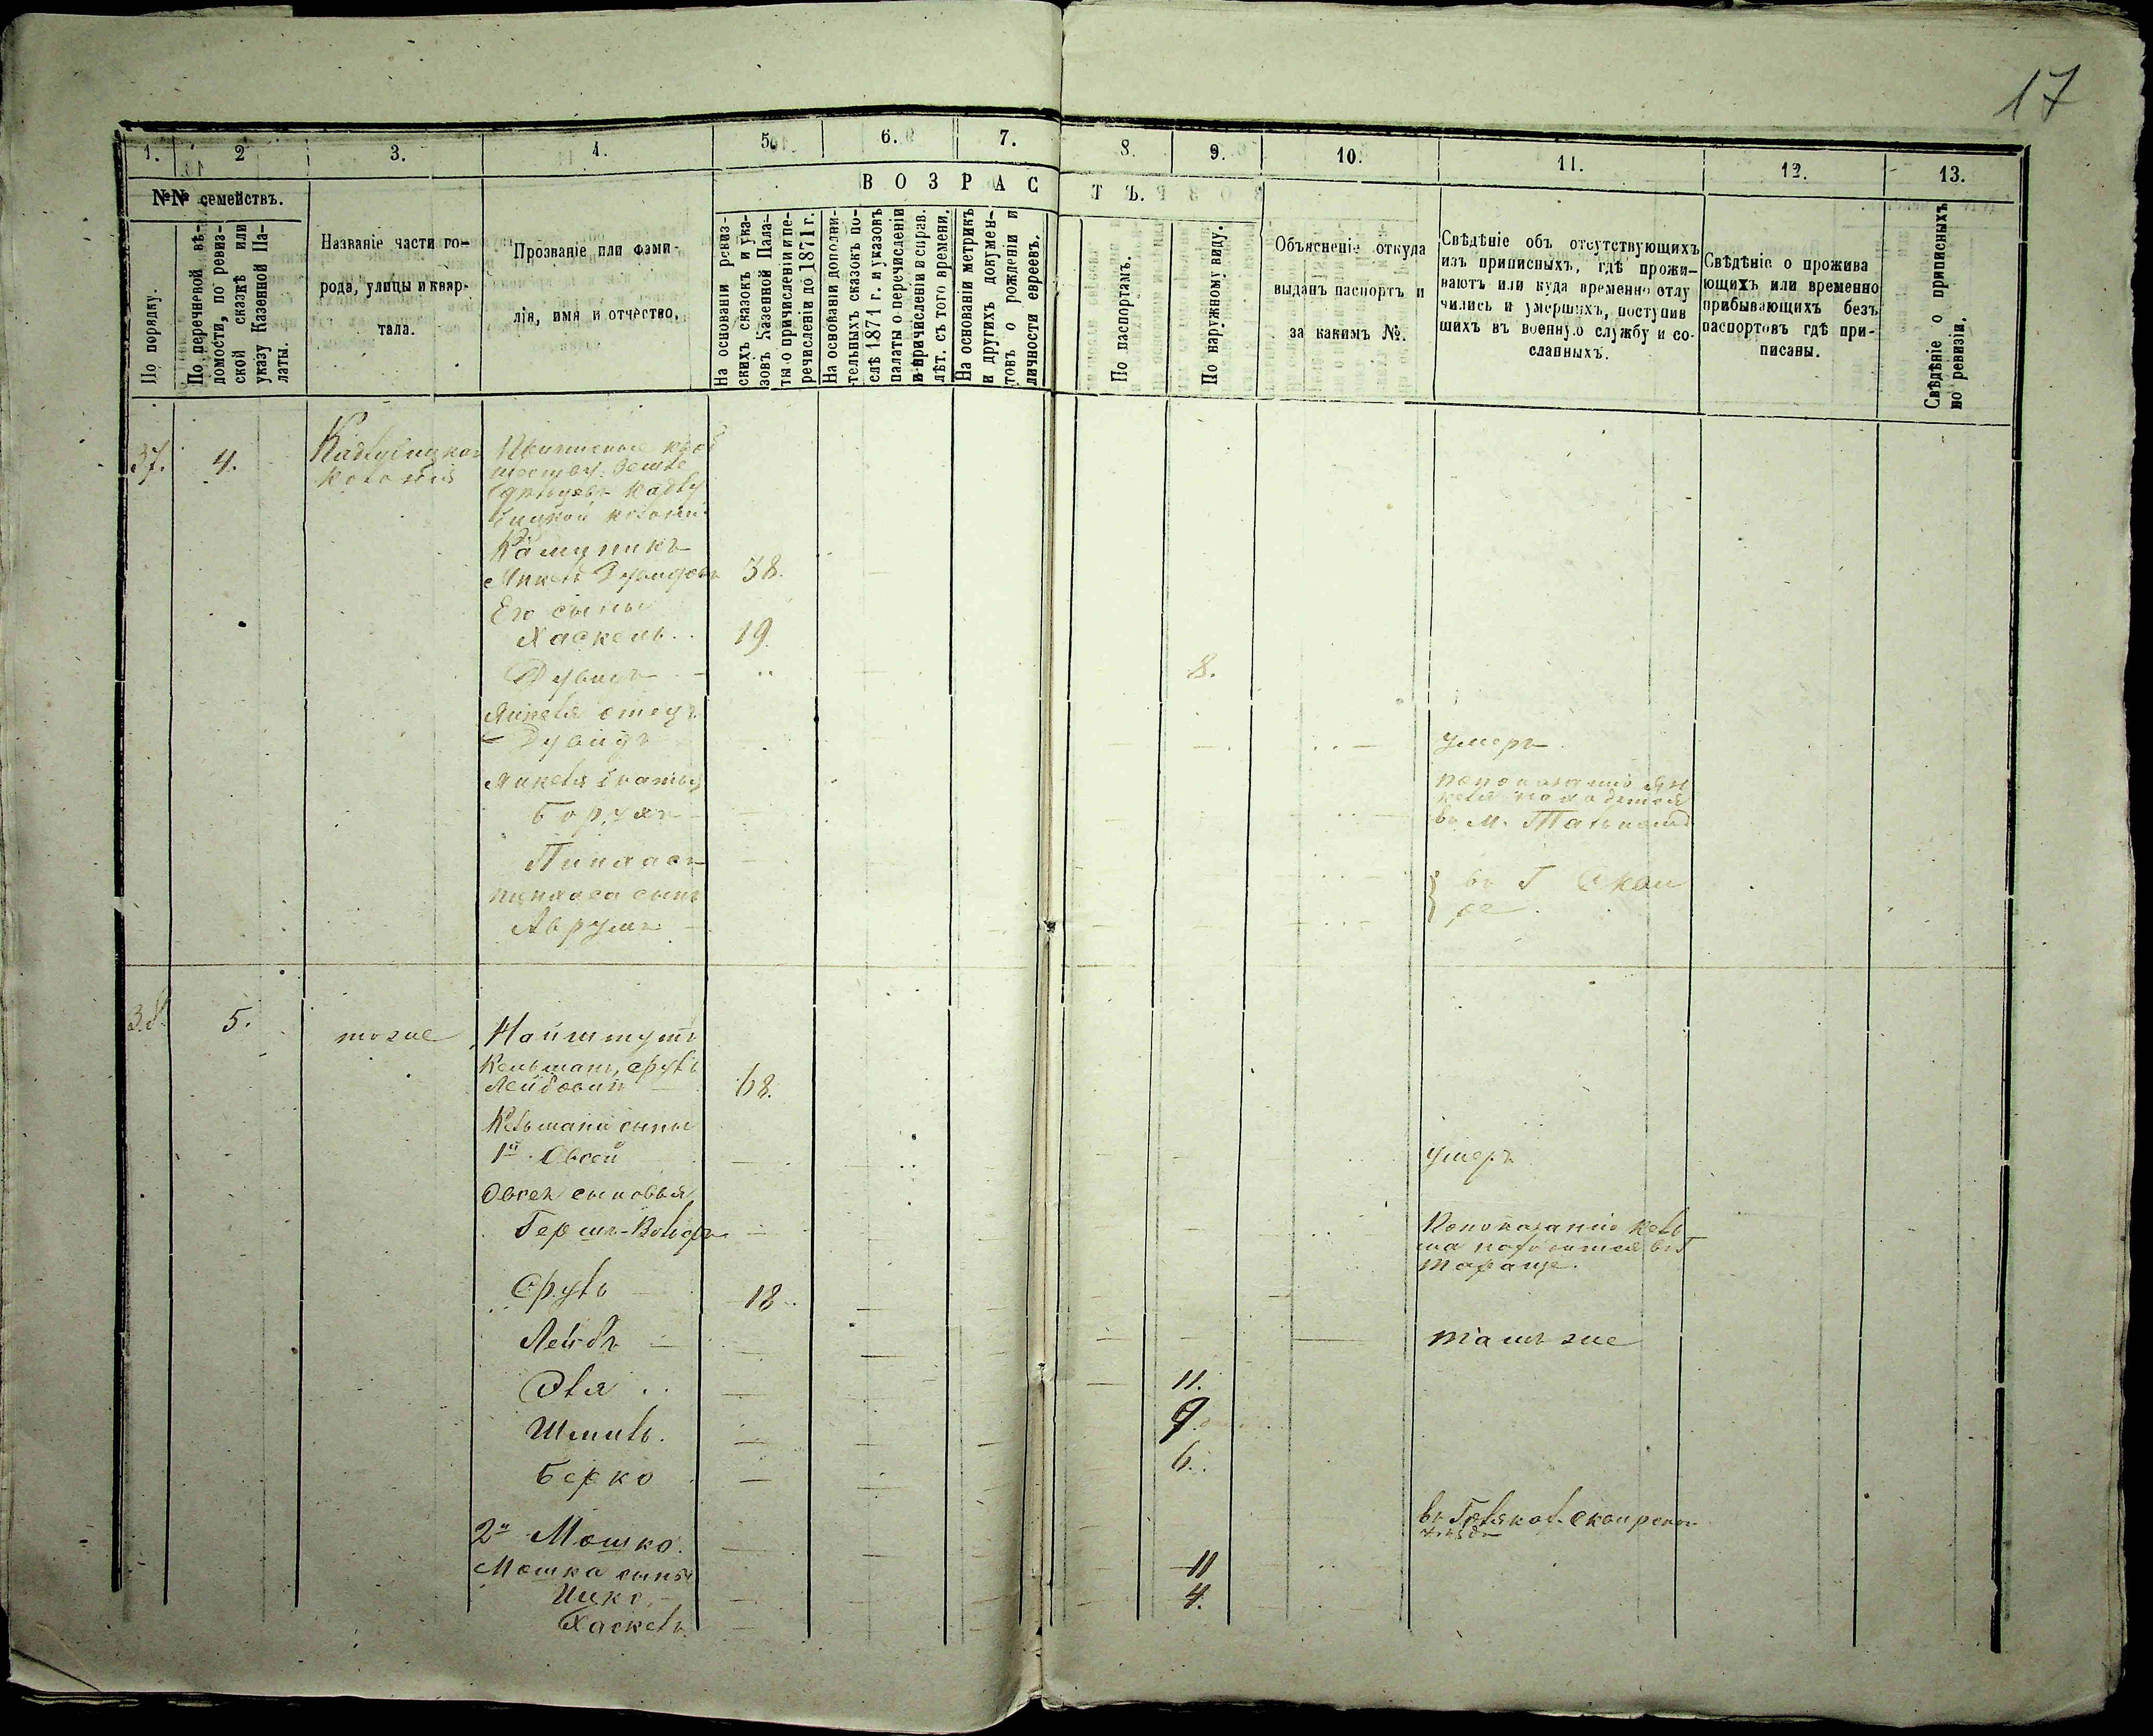 17
1. 2 3. 4. 5. 6. 7. 8. 9. 10. 11. 12. 13.
№№ семействъ.
По порядку.
По перечневой вѣ-
домости, по ревиз-
ской сказкѣ или
указу Казенной Па-
латы.
Названіе части го-
рода, улицы и квар-
тала.
Прозваніе или фами-
лія, имя и отчество.
ВОЗРАСТЪ.
На основаніи ревиз-
скихъ сказокъ и ука-
зовъ Казенной Пала-
ты о причисленіи и пе-
речисленіи до 1871 г.
На основаніи дополни-
тельныхъ сказокъ по-
слѣ 1871 г. и указовъ
палаты о перечисленіи
и причисленіи и справ.
лѣт. съ того времени.
На основаніи метрикъ
и другихъ докумен-
товъ о рожденіи и
личности евреевъ.
По паспортамъ.
По наружному виду.
Объясненіе откуда
выданъ паспортъ и
за какимъ №.
Свѣдѣніе объ отсутствующихъ
изъ приписныхъ, гдѣ прожи-
ваютъ или куда временно отлу
чились и умершихъ, поступив
шихъ въ военную службу и со-
сланныхъ.
Свѣдѣніе о прожива
ющихъ или временно
прибывающихъ безъ
паспортовъ гдѣ при-
писаны.
Свѣдѣніе о приписныхъ
по ревизіи.
37. 4. Кадлубицкая
колонія
Кадлу
бицкой колоніи
38.
Его сыны
Хаскель 19.
8.
Янкеля отецъ
умеръ
Янкеля братья
Борухъ
въ м.
Пинхасъ
въ Г Скви
ре.
Пинхаса сынъ
Аврумъ
38. 5. тоже Найштутъ
Кельманъ, Срулъ
Лейбовичъ 68.
Кельмана сыны
1й Овсей умеръ
Овсея сыновья
Гершъ-Вольфъ
По показанію Кель
мана находится въ Г
Тараще.
Срулъ 18
Лейбъ тамъ же
Эля 11.
Шмиль. 9.
Берко 6.
2й Мошко.
Мошка сыны 11
Ицко 4.
Хаскель